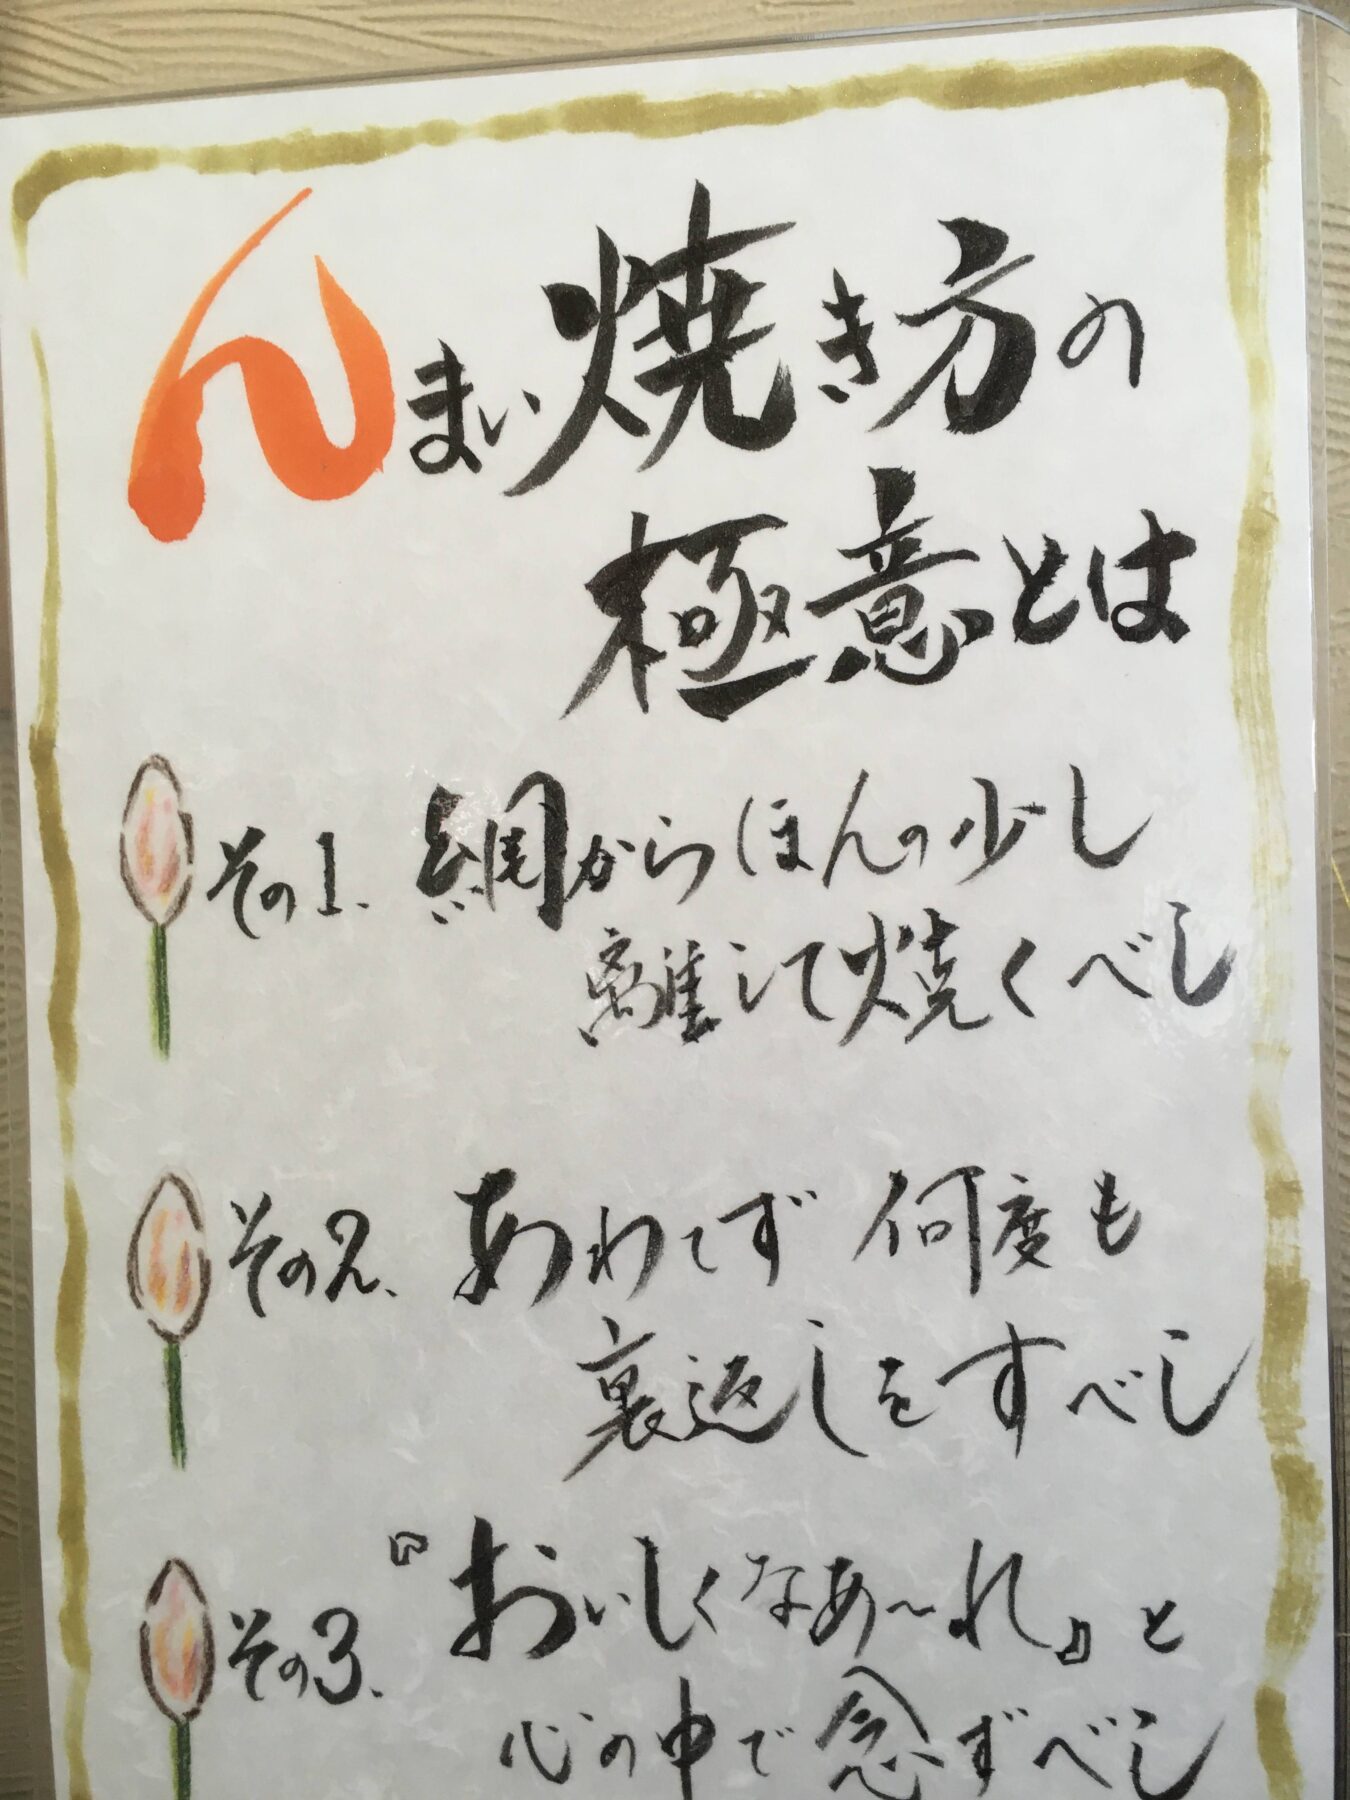 んまい焼き方の
極意とは
その1. 網からほんの少し
離して焼くべし
その2. あわてず何度も
裏返しをすべし
その3. 『おいしくなあ〜れ』と
心の中で念ずべし